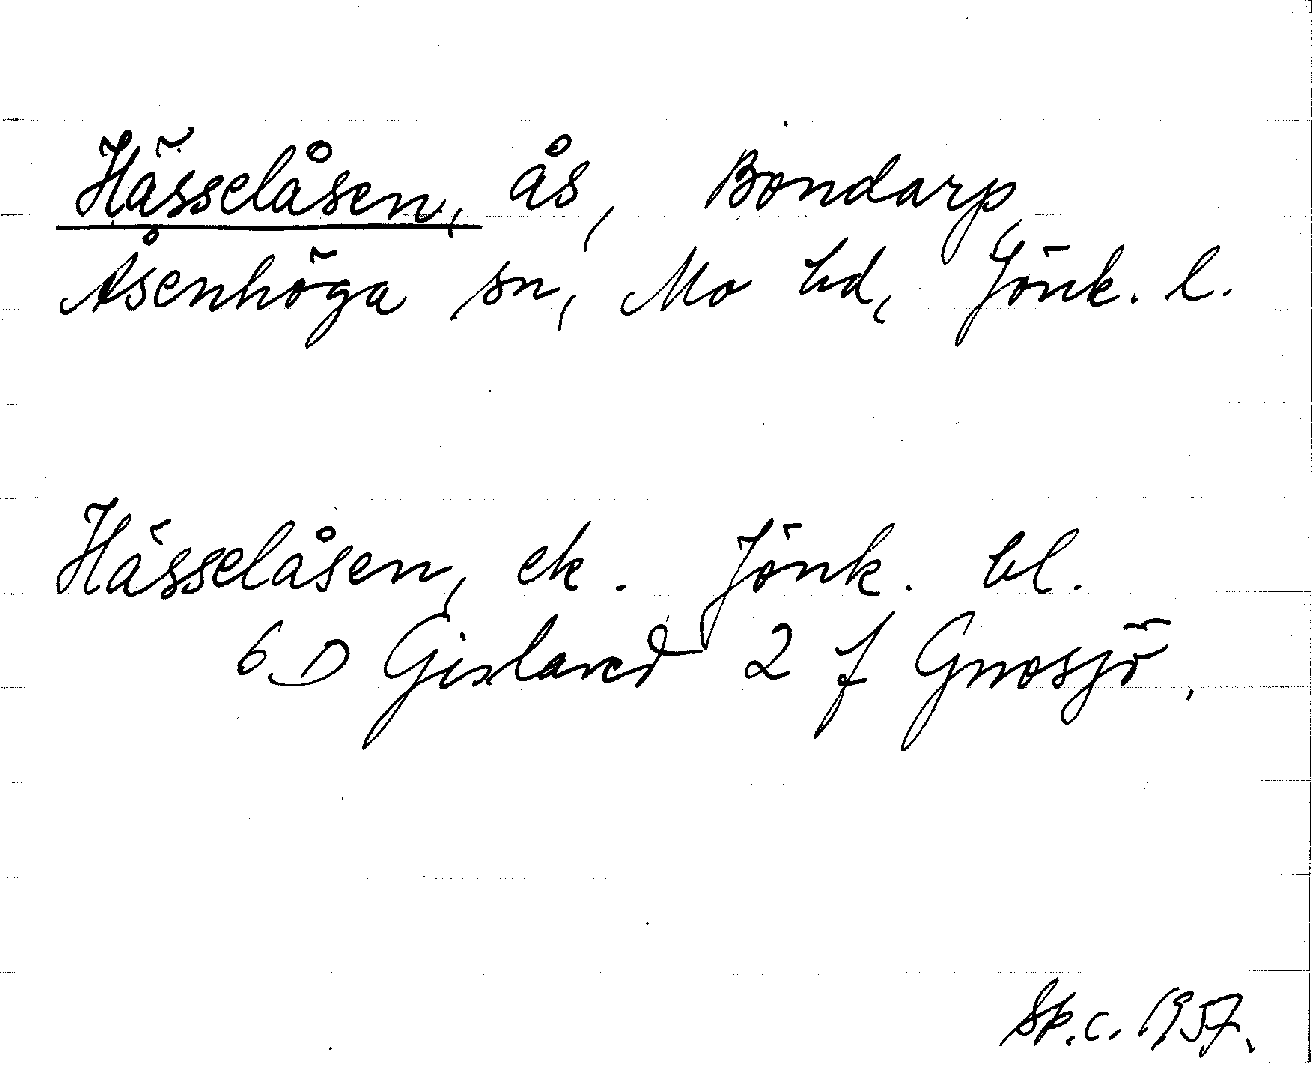 Hässelåsen, ås, Bondarp,
Åsenhöga sn, Mo hd, Jönk. l.
Hässelåsen, ek. Jönk. bl.
6 D Gislaved 2 f Gnosjö.
Sk. c. 1957.